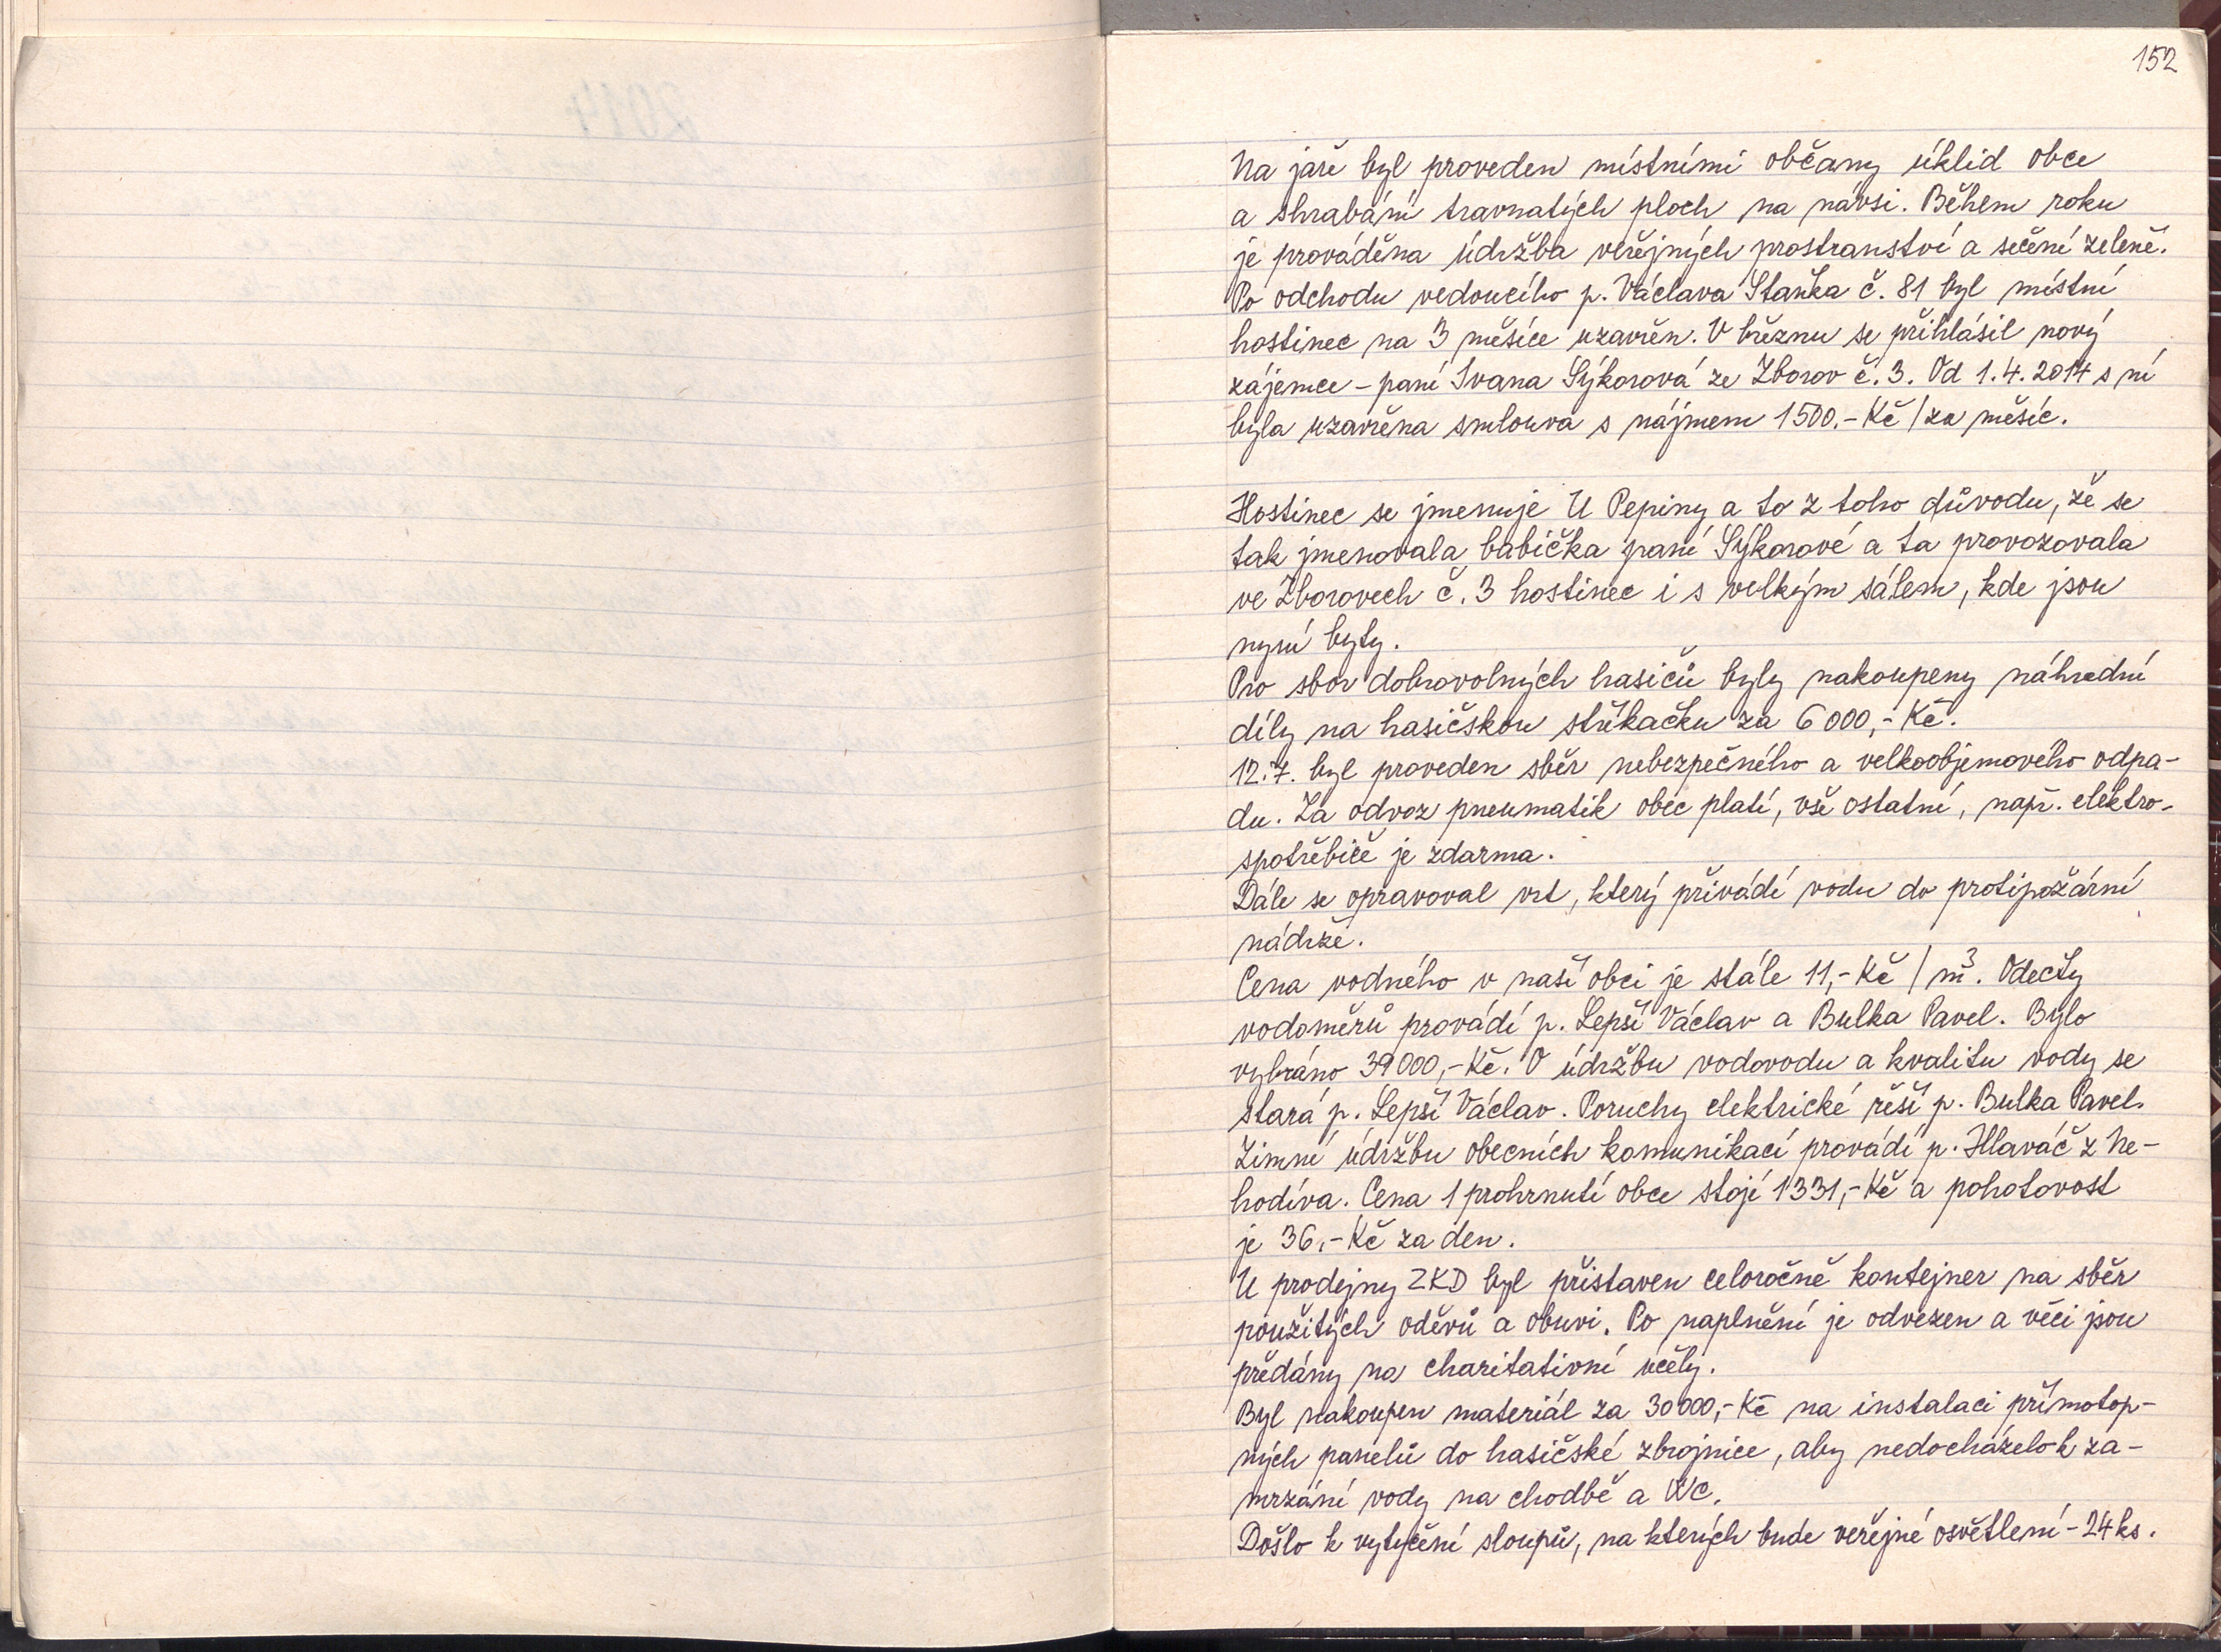 152
Na jaře byl proveden místními občany úklid obce
a shrabání travnatých ploch na návsi. Během roku
je prováděna údržba veřejných prostranství a sečení zeleně.
Po odchodu vedoucího p. Václava Staňka č. 81 byl místní
hostinec na 3 měsíce uzavřen. V březnu se přihlásil nový
zájemce - paní Ivana Sýkorová ze Zborov č. 3. Od 1.4. 2014 s ní
byla uzavřena smlouva s nájmem 1500.- Kč / za měsíc.
Hostinec se jmenuje U Pepiny a to z toho důvodu, že se
tak jmenovala babička paní Sýkorové a ta provozovala
ve Zborovech č. 3 hostinec i s velkým sálem, kde jsou
nyní byty.
Pro sbor dobrovolných hasičů byly nakoupeny náhradní
díly na hasičskou stříkačku za 6 000,- Kč.
12.7. byl proveden sběr nebezpečného a velkoobjemového odpa-
du. Za odvoz pneumatik obec platí, vše ostatní, např. elektro-
spotřebiče je zdarma.
Dále se opravoval vrt, který přivádí vodu do protipožární
nádrže.
Cena vodného v naší obci je stále 11,- Kč / m³. Odečty
vodoměrů provádí p. Lepší Václav a Bulka Pavel. Bylo
vybráno 39 000,- Kč. O údržbu vodovodu a kvalitu vody se
stará p. Lepší Václav. Poruchy elektrické řeší p. Bulka Pavel.
Zimní údržbu obecních komunikací provádí p. Hlaváč z Ne-
hodíva. Cena 1 prohrnutí obce stojí 1331,- Kč a pohotovost
je 36,- Kč za den.
U prodejny ZKD byl přistaven celoročně kontejner na sběr
použitých oděvů a obuvi. Po naplnění je odvezen a věci jsou
předány na charitativní účely.
Byl nakoupen materiál za 30 000,- Kč na instalaci přímotop-
ných panelů do hasičské zbrojnice, aby nedocházelo k za-
mrzání vody na chodbě a WC.
Došlo k vytyčení sloupů, na kterých bude veřejné osvětlení - 24 ks.